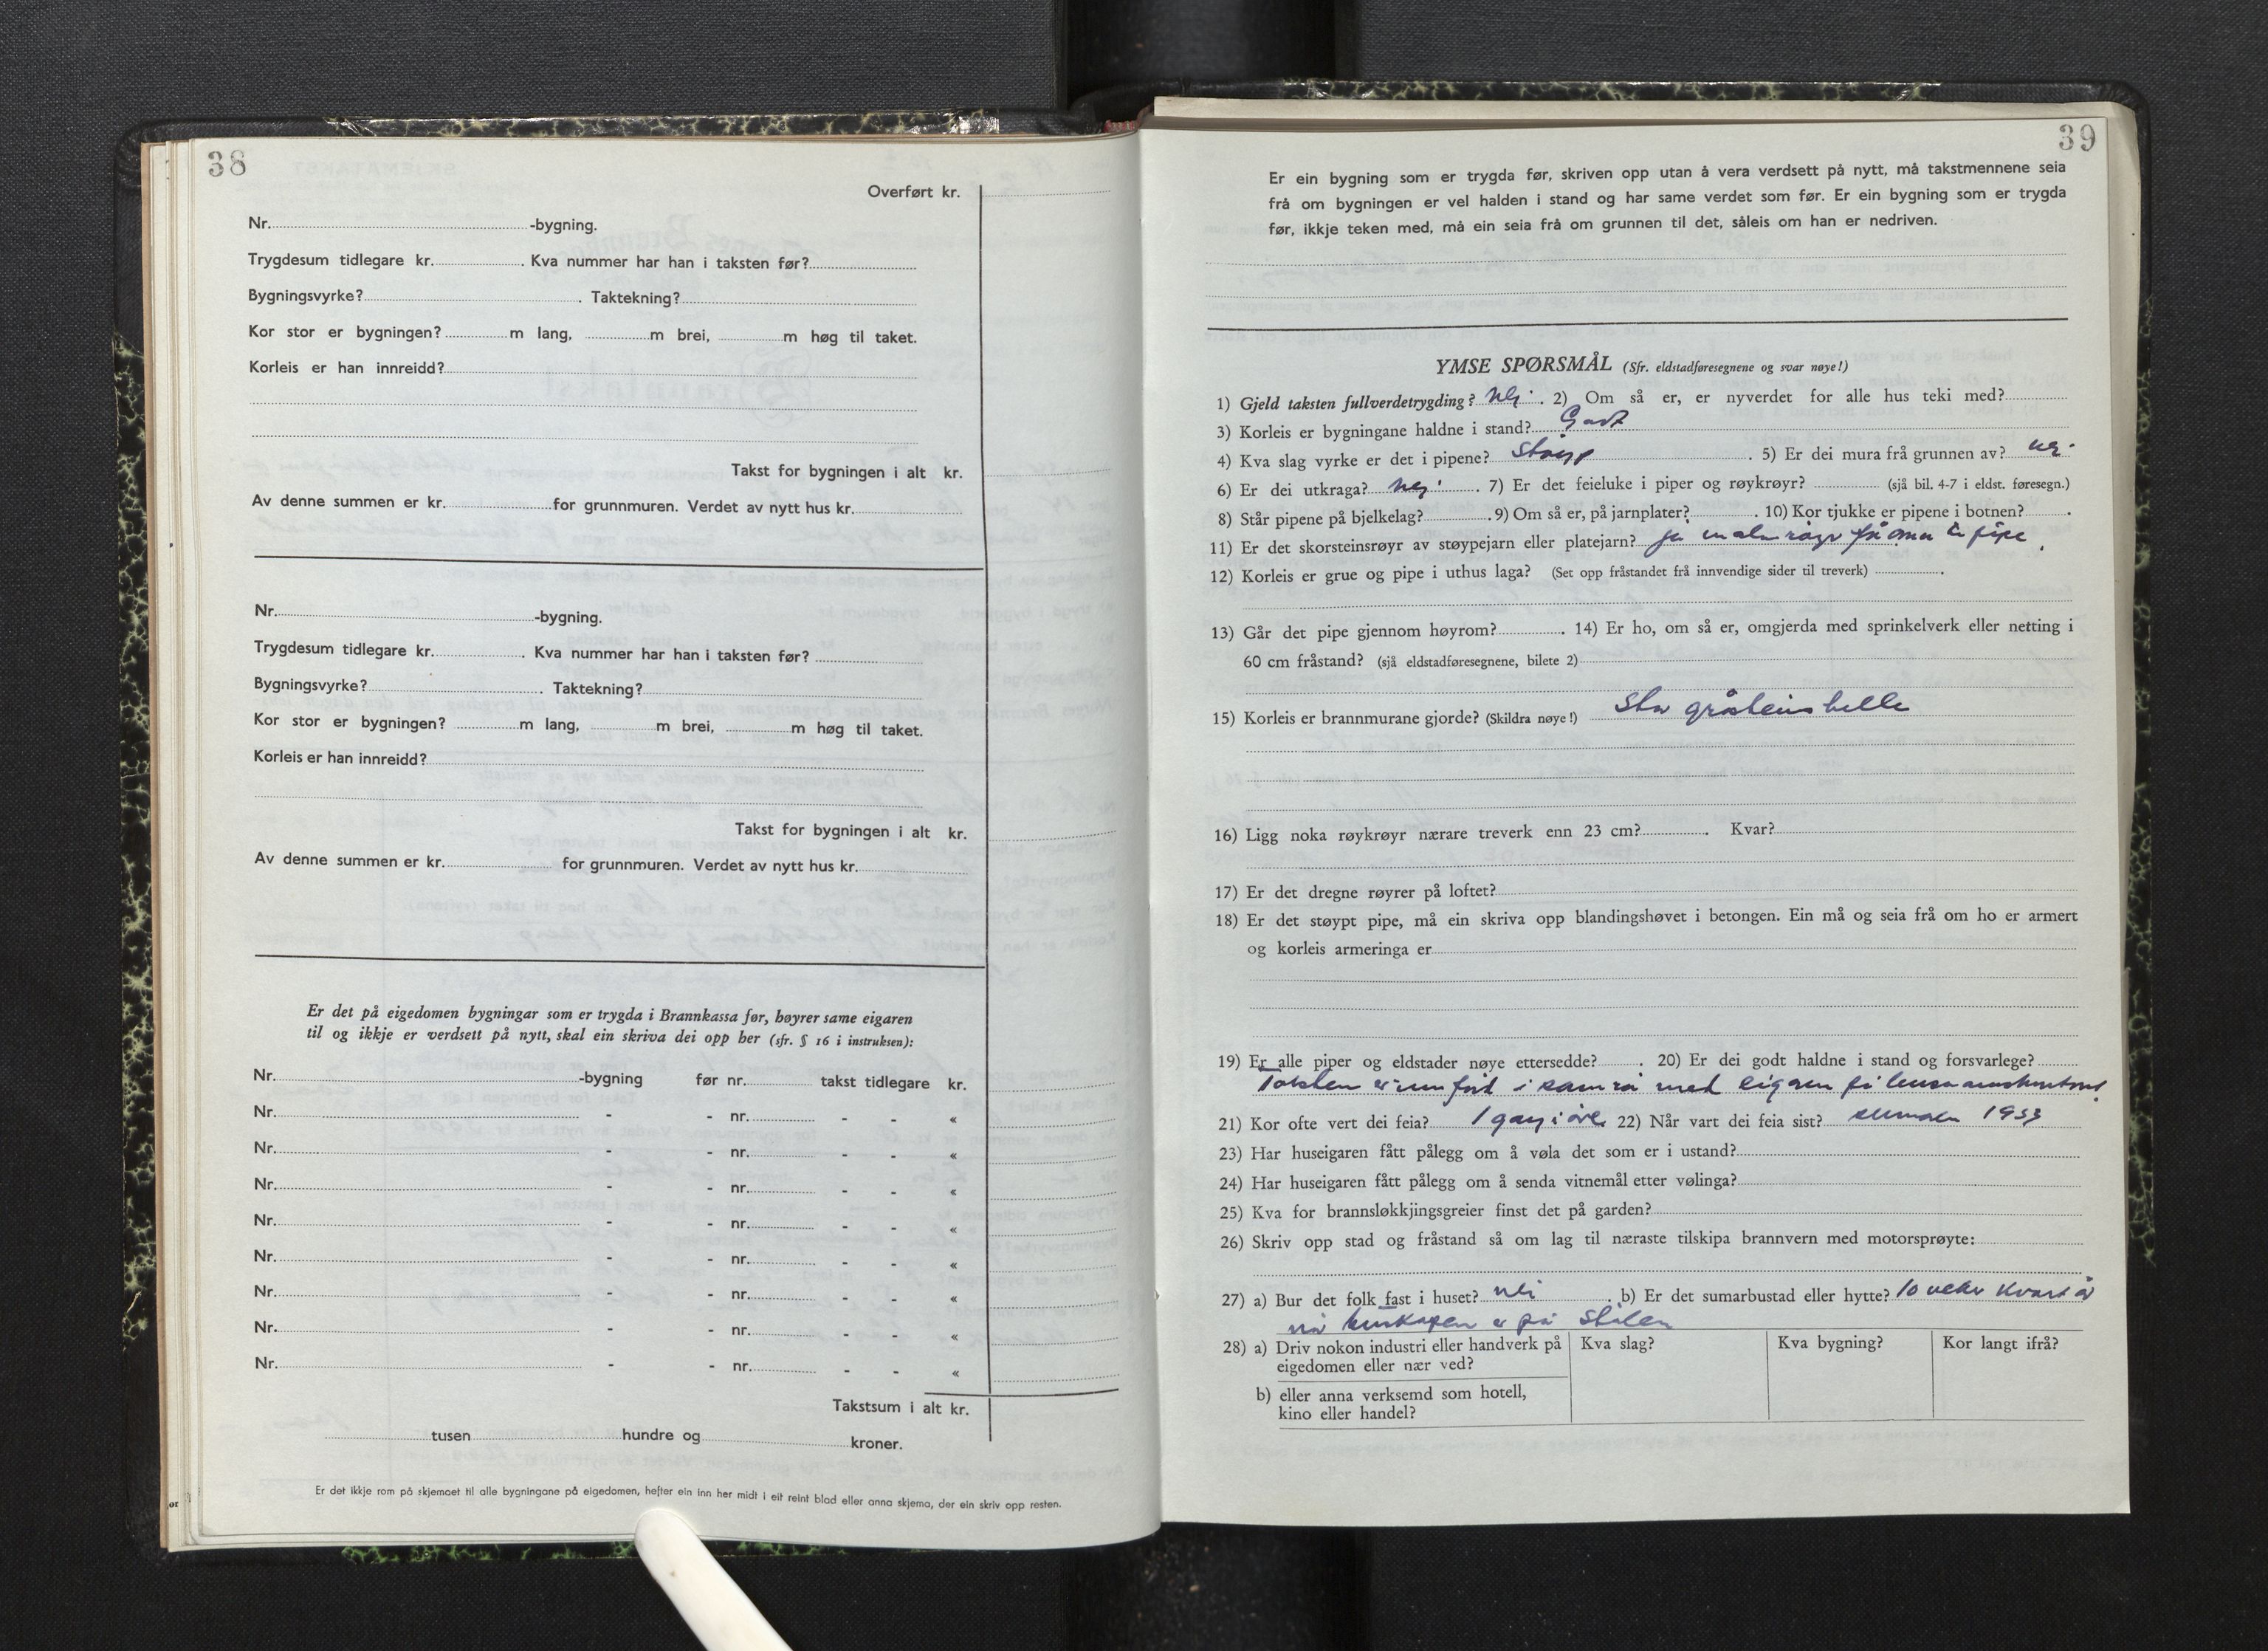 38
Overført kr.
Nr. -bygning.
Trygdesum tidlegare kr. . Kva nummer har han i taksten før?
Bygningsvyrke? . Taktekning?
Kor stor er bygningen? m lang, m brei, m høg til taket.
Korleis er han innreidd?
Takst for bygningen i alt kr.
Av denne summen er kr. for grunnmuren. Verdet av nytt hus kr.
Nr. -bygning.
Trygdesum tidlegare kr. . Kva nummer har han i taksten før?
Bygningsvyrke? . Taktekning?
Kor stor er bygningen? m lang, m brei, m høg til taket.
Korleis er han innreidd?
Takst for bygningen i alt kr.
Av denne summen er kr. for grunnmuren. Verdet av nytt hus kr.
Er det på eigedomen bygningar som er trygda i Brannkassa før, høyrer same eigaren
til og ikkje er verdsett på nytt, skal ein skriva dei opp her (sfr. § 16 i instruksen):
Nr. -bygning før nr. takst tidlegare kr.
Nr. - - nr. - - «
Nr. - - nr. - - «
Nr. - - nr. - - «
Nr. - - nr. - - «
Nr. - - nr. - - «
Nr. - - nr. - - «
Nr. - - nr. - - «
Nr. - - nr. - - «
Takstsum i alt kr.
tusen hundre og kroner.
Er det ikkje rom på skjemaet til alle bygningane på eigedomen, hefter ein inn her midt i eit reint blad eller anna skjema, der ein skriv opp resten.
39
Er ein bygning som er trygda før, skriven opp utan å vera verdsett på nytt, må takstmennene seia
frå om bygningen er vel halden i stand og har same verdet som før. Er ein bygning som er trygda
før, ikkje teken med, må ein seia frå om grunnen til det, såleis om han er nedriven.
YMSE SPØRSMÅL (Sfr. eldstadføresegnene og svar nøye!)
1) Gjeld taksten fullverdetrygding? Nei. 2) Om så er, er nyverdet for alle hus teki med?
3) Korleis er bygningane haldne i stand? Godt
4) Kva slag vyrke er det i pipene? Støyp . 5) Er dei mura frå grunnen av? nei
6) Er dei utkraga? Nei . 7) Er det feieluke i piper og røykrøyr? (sjå bil. 4-7 i eldst. føresegn.)
8) Står pipene på bjelkelag? . 9) Om så er, på jarnplater? . 10) Kor tjukke er pipene i botnen? .
11) Er det skorsteinsrøyr av støypejarn eller platejarn? Ja malmrøyr frå omn til pipe.
12) Korleis er grue og pipe i uthus laga? (Set opp fråstandet frå innvendige sider til treverk) .
13) Går det pipe gjennom høyrom? . 14) Er ho, om så er, omgjerda med sprinkelverk eller netting i
60 cm fråstand? (sjå eldstadføresegnene, bilete 2)
15) Korleis er brannmurane gjorde? (Skildra nøye!) Stor gråsteinshelle
16) Ligg noka røykrøyr nærare treverk enn 23 cm? . Kvar?
17) Er det dregne røyrer på loftet?
18) Er det støypt pipe, må ein skriva opp blandingshøvet i betongen. Ein må og seia frå om ho er armert
og korleis armeringa er
19) Er alle piper og eldstader nøye ettersedde? . 20) Er dei godt haldne i stand og forsvarlege?
Taksten er i samråd med eigaren på lensmannskontoret
21) Kor ofte vert dei feia? 1 gang i året. 22) Når vart dei feia sist? summaren 1953
23) Har huseigaren fått pålegg om å vøla det som er i ustand?
24) Har huseigaren fått pålegg om å senda vitnemål etter vølinga?
25) Kva for brannsløkkjingsgreier finst det på garden?
26) Skriv opp stad og fråstand så om lag til næraste tilskipa brannvern med motorsprøyte:
27) a) Bur det folk fast i huset? nei . b) Er det sumarbustad eller hytte? 10 veker kvart år
når buskapen er på stølen
28) a) Driv nokon industri eller handverk på Kva slag? Kva bygning? Kor langt ifrå?
eigedomen eller nær ved?
b) eller anna verksemd som hotell,
kino eller handel?